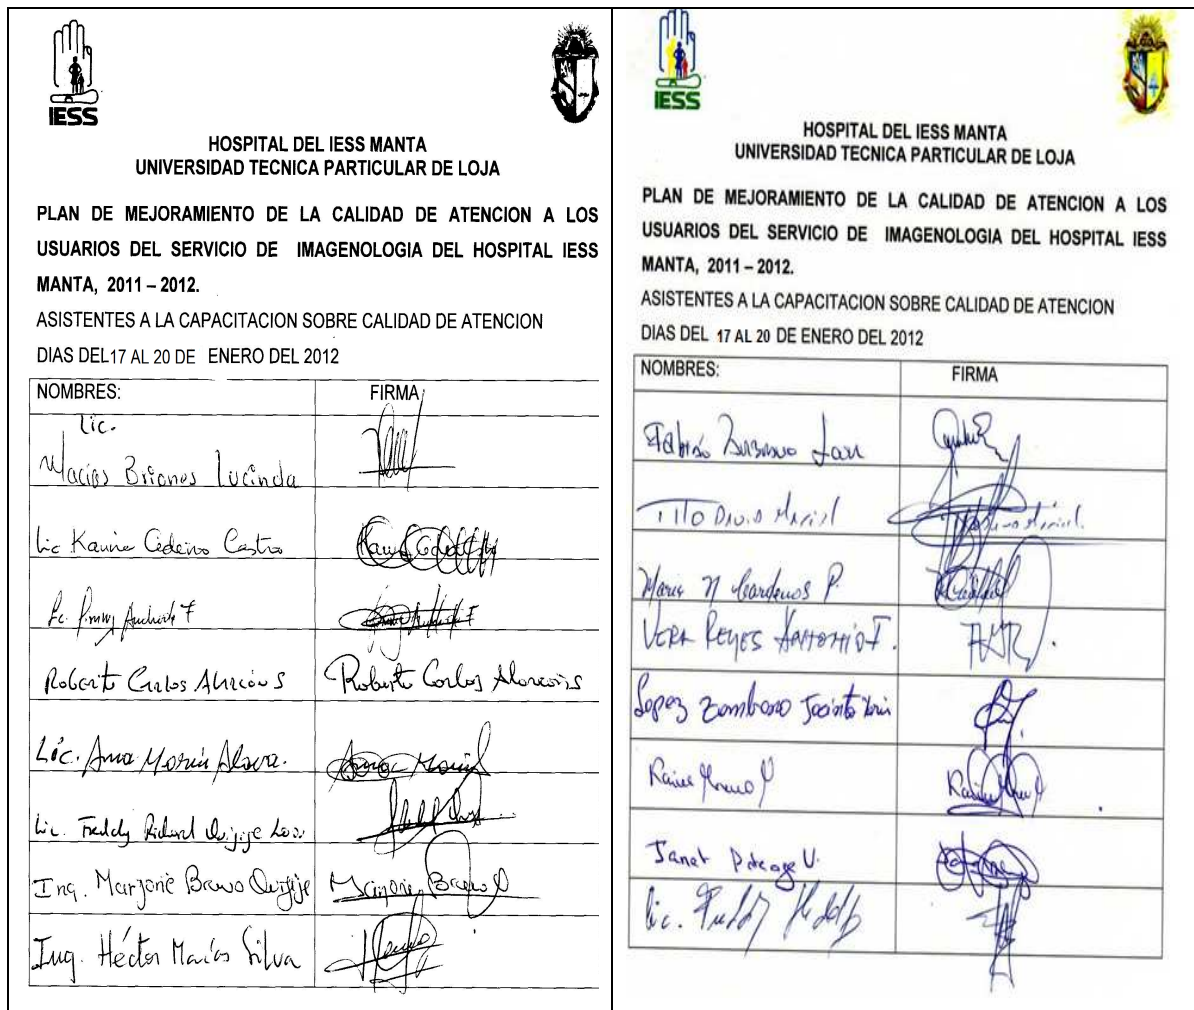 IESS
HOSPITAL DEL IESS MANTA
UNIVERSIDAD TECNICA PARTICULAR DE LOJA
PLAN DE MEJORAMIENTO DE LA CALIDAD DE ATENCION A LOS
USUARIOS DEL SERVICIO DE IMAGENOLOGIA DEL HOSPITAL IESS
MANTA, 2011 – 2012.
ASISTENTES A LA CAPACITACION SOBRE CALIDAD DE ATENCION
DIAS DEL 17 AL 20 DE ENERO DEL 2012
NOMBRES: FIRMA
Lic.
Macías Briones Lucinda
Lic Karina Cedeño Castro
Roberto Carlos Alarcons Roberto Carlos Alarcons
Lic. Ana María Alava.
Lic. Freddy Richard Quijije
Ing. Marjorie Bravo Quijije Marjorie Bravo Q
Ing. Héctor Macías Silva
IESS
HOSPITAL DEL IESS MANTA
UNIVERSIDAD TECNICA PARTICULAR DE LOJA
PLAN DE MEJORAMIENTO DE LA CALIDAD DE ATENCION A LOS
USUARIOS DEL SERVICIO DE IMAGENOLOGIA DEL HOSPITAL IESS
MANTA, 2011 – 2012.
ASISTENTES A LA CAPACITACION SOBRE CALIDAD DE ATENCION
DIAS DEL 17 AL 20 DE ENERO DEL 2012
NOMBRES: FIRMA
Tito David
Maria N Cardenos P.
VERA REYES ANTONIO F.
Lopez Zambrano Jacinto
Janet
Lic. Freddy